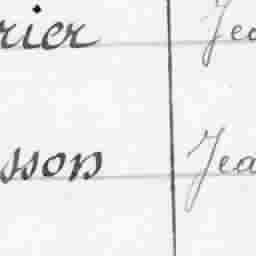 rier Jea
sson Jea